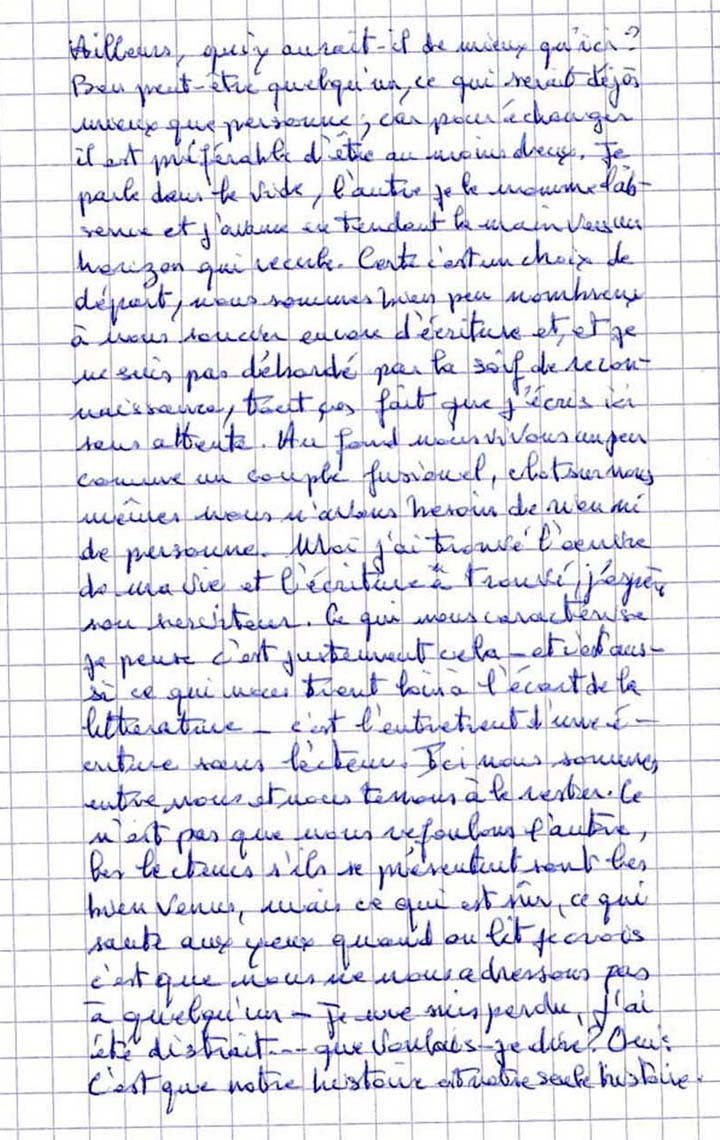 Ailleurs, qu'y aurait-il de mieux qu'ici?
Ben peut-être quelqu'un, ce qui serait déjà
mieux que personne, car pour échanger
il est préférable d'être au moins deux. Je
parle dans le vide, l'autre je le nomme l'ab-
sence et j'avance en tendant la main vers un
horizon qui recule. Certe c'est un choix de
départ, nous sommes bien peu nombreux
à nous soucier encore d'écriture et, et je
ne suis pas débordé par la soif de recon-
naissance, tout ça fait que j'écris ici
sans attente. Au fond nous vivons un peu
comme un couple fusionel, clot sur nous
mêmes nous n'avons besoin de rien ni
de personne. Moi j'ai trouvé l'oeuvre
de ma vie et l'écriture à trouvé, j'espère
son serviteur. Ce qui nous caractérise
je pense c'est justement cela - et c'est aus-
si ce qui nous tient loin à l'écart de la
litterature - c'est l'entretient d'une é-
criture sans lecteur. Ici nous sommes
entre nous et nous tenons à le rester. Ce
n'est pas que nous refoulons l'autre,
les lecteurs s'ils se présentent sont les
bien venus, mais ce qui est sûr, ce qui
saute aux yeux quand on lit je crois
c'est que nous ne nous adressons pas
à quelqu'un - Je me suis perdu, j'ai
été distrait... que voulais-je dire? Oui:
C'est que notre histoire est notre seule histoire.